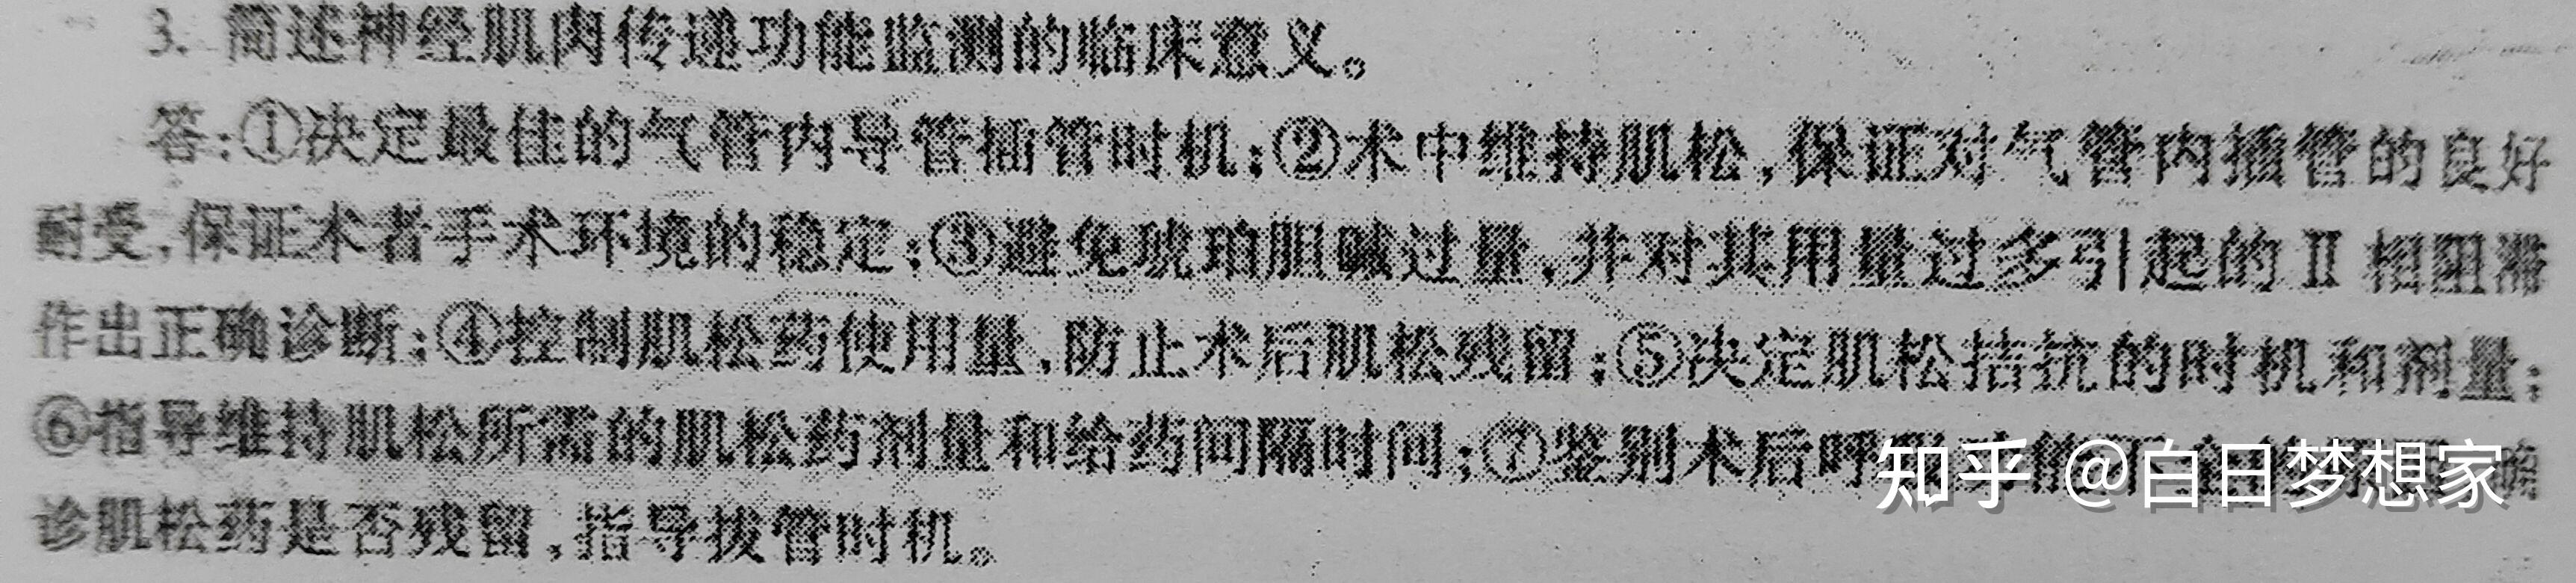 3. 简述神经肌肉传递功能监测的临床意义。
答:①决定最佳的气管内导管插管时机;②术中维持肌松,保证对气管内插管的良好
耐受,保证术者手术环境的稳定;③避免琥珀胆碱过量,并对其用量过多引起的Ⅱ相阻滞
作出正确诊断;④控制肌松药使用量,防止术后肌松残留;⑤决定肌松拮抗的时机和剂量;
⑥指导维持肌松所需的肌松药剂量和给药间隔时间;⑦鉴别术后呼
知乎 @白日梦想家
诊肌松药是否残留,指导拔管时机。